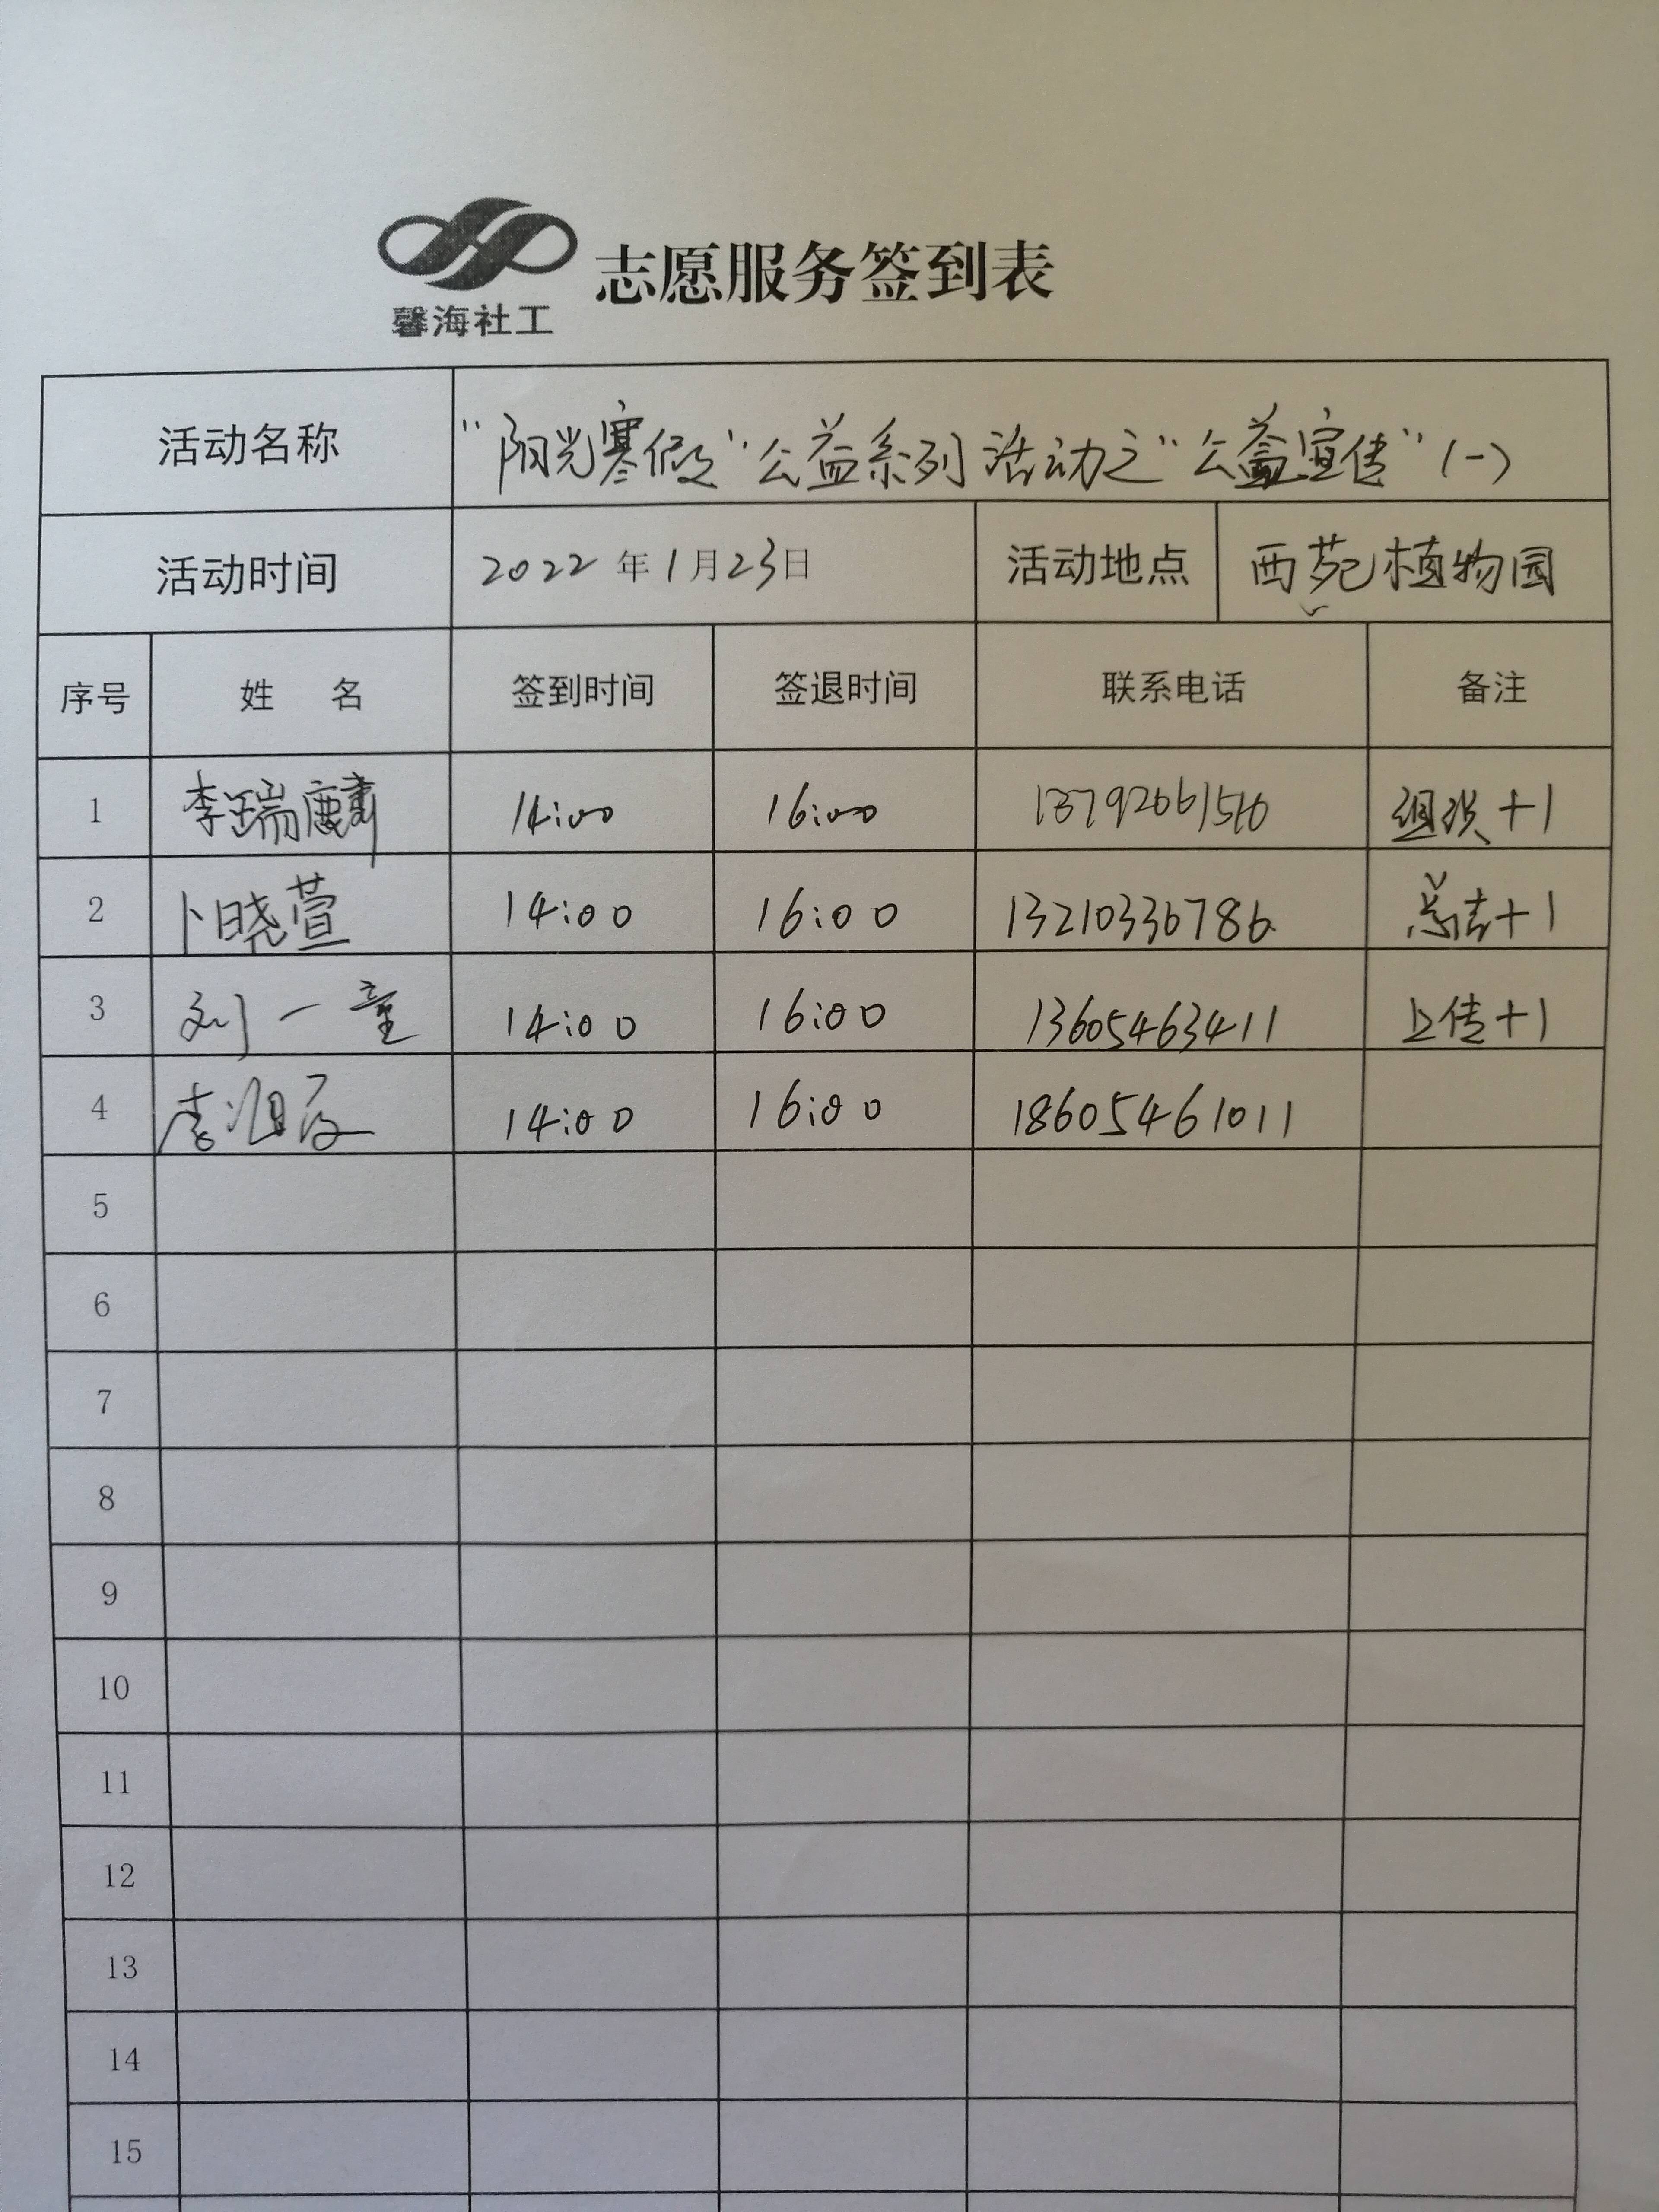 馨海社工
志愿服务签到表
活动名称 “阳光寒假”公益系列活动之“公益宣传”(一)
活动时间 2022年1月23日 活动地点 西苑植物园
序号 姓 名 签到时间 签退时间 联系电话 备注
1 李瑞麟 14:00 16:00 组织+1
2 卜晓萱 14:00 16:00 13210336786 总结+1
3 刘一童 14:00 16:00 13605463411 上传+1
4 李 14:00 16:00 18605461011
5
6
7
8
9
10
11
12
13
14
15